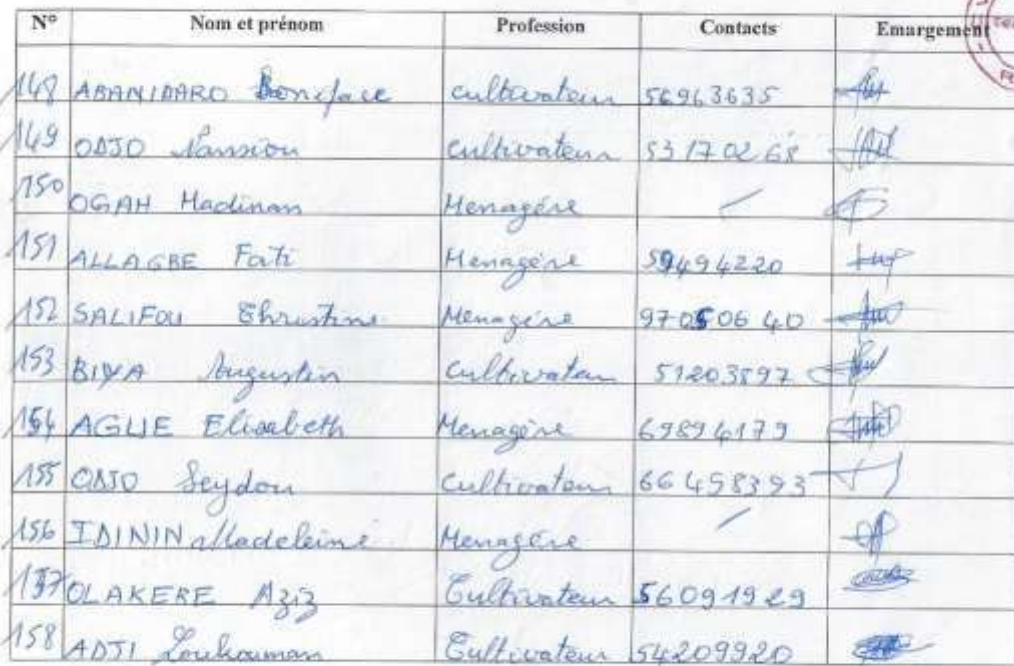 N° Nom et prénom Profession Contacts Emargement
148 ABANIDARO Boniface cultivateur 56963635
149 ODJO Nansiou cultivateur 53170268
150 OGAH Madinan Menagére /
151 ALLAGBE Fati Menagère 59494220
152 SALIFOU Christine Menagère 97050640
153 BIYA Augustin cultivateur 51203897
154 AGUE Elisabeth Menagère 69894179
155 ODJO Seydou cultivateur 66458393
156 IDININ Madeleine Menagère /
157 OLAKERE Aziz Cultivateur 56091929
158 ADJI Loukouman Cultivateur 54209920